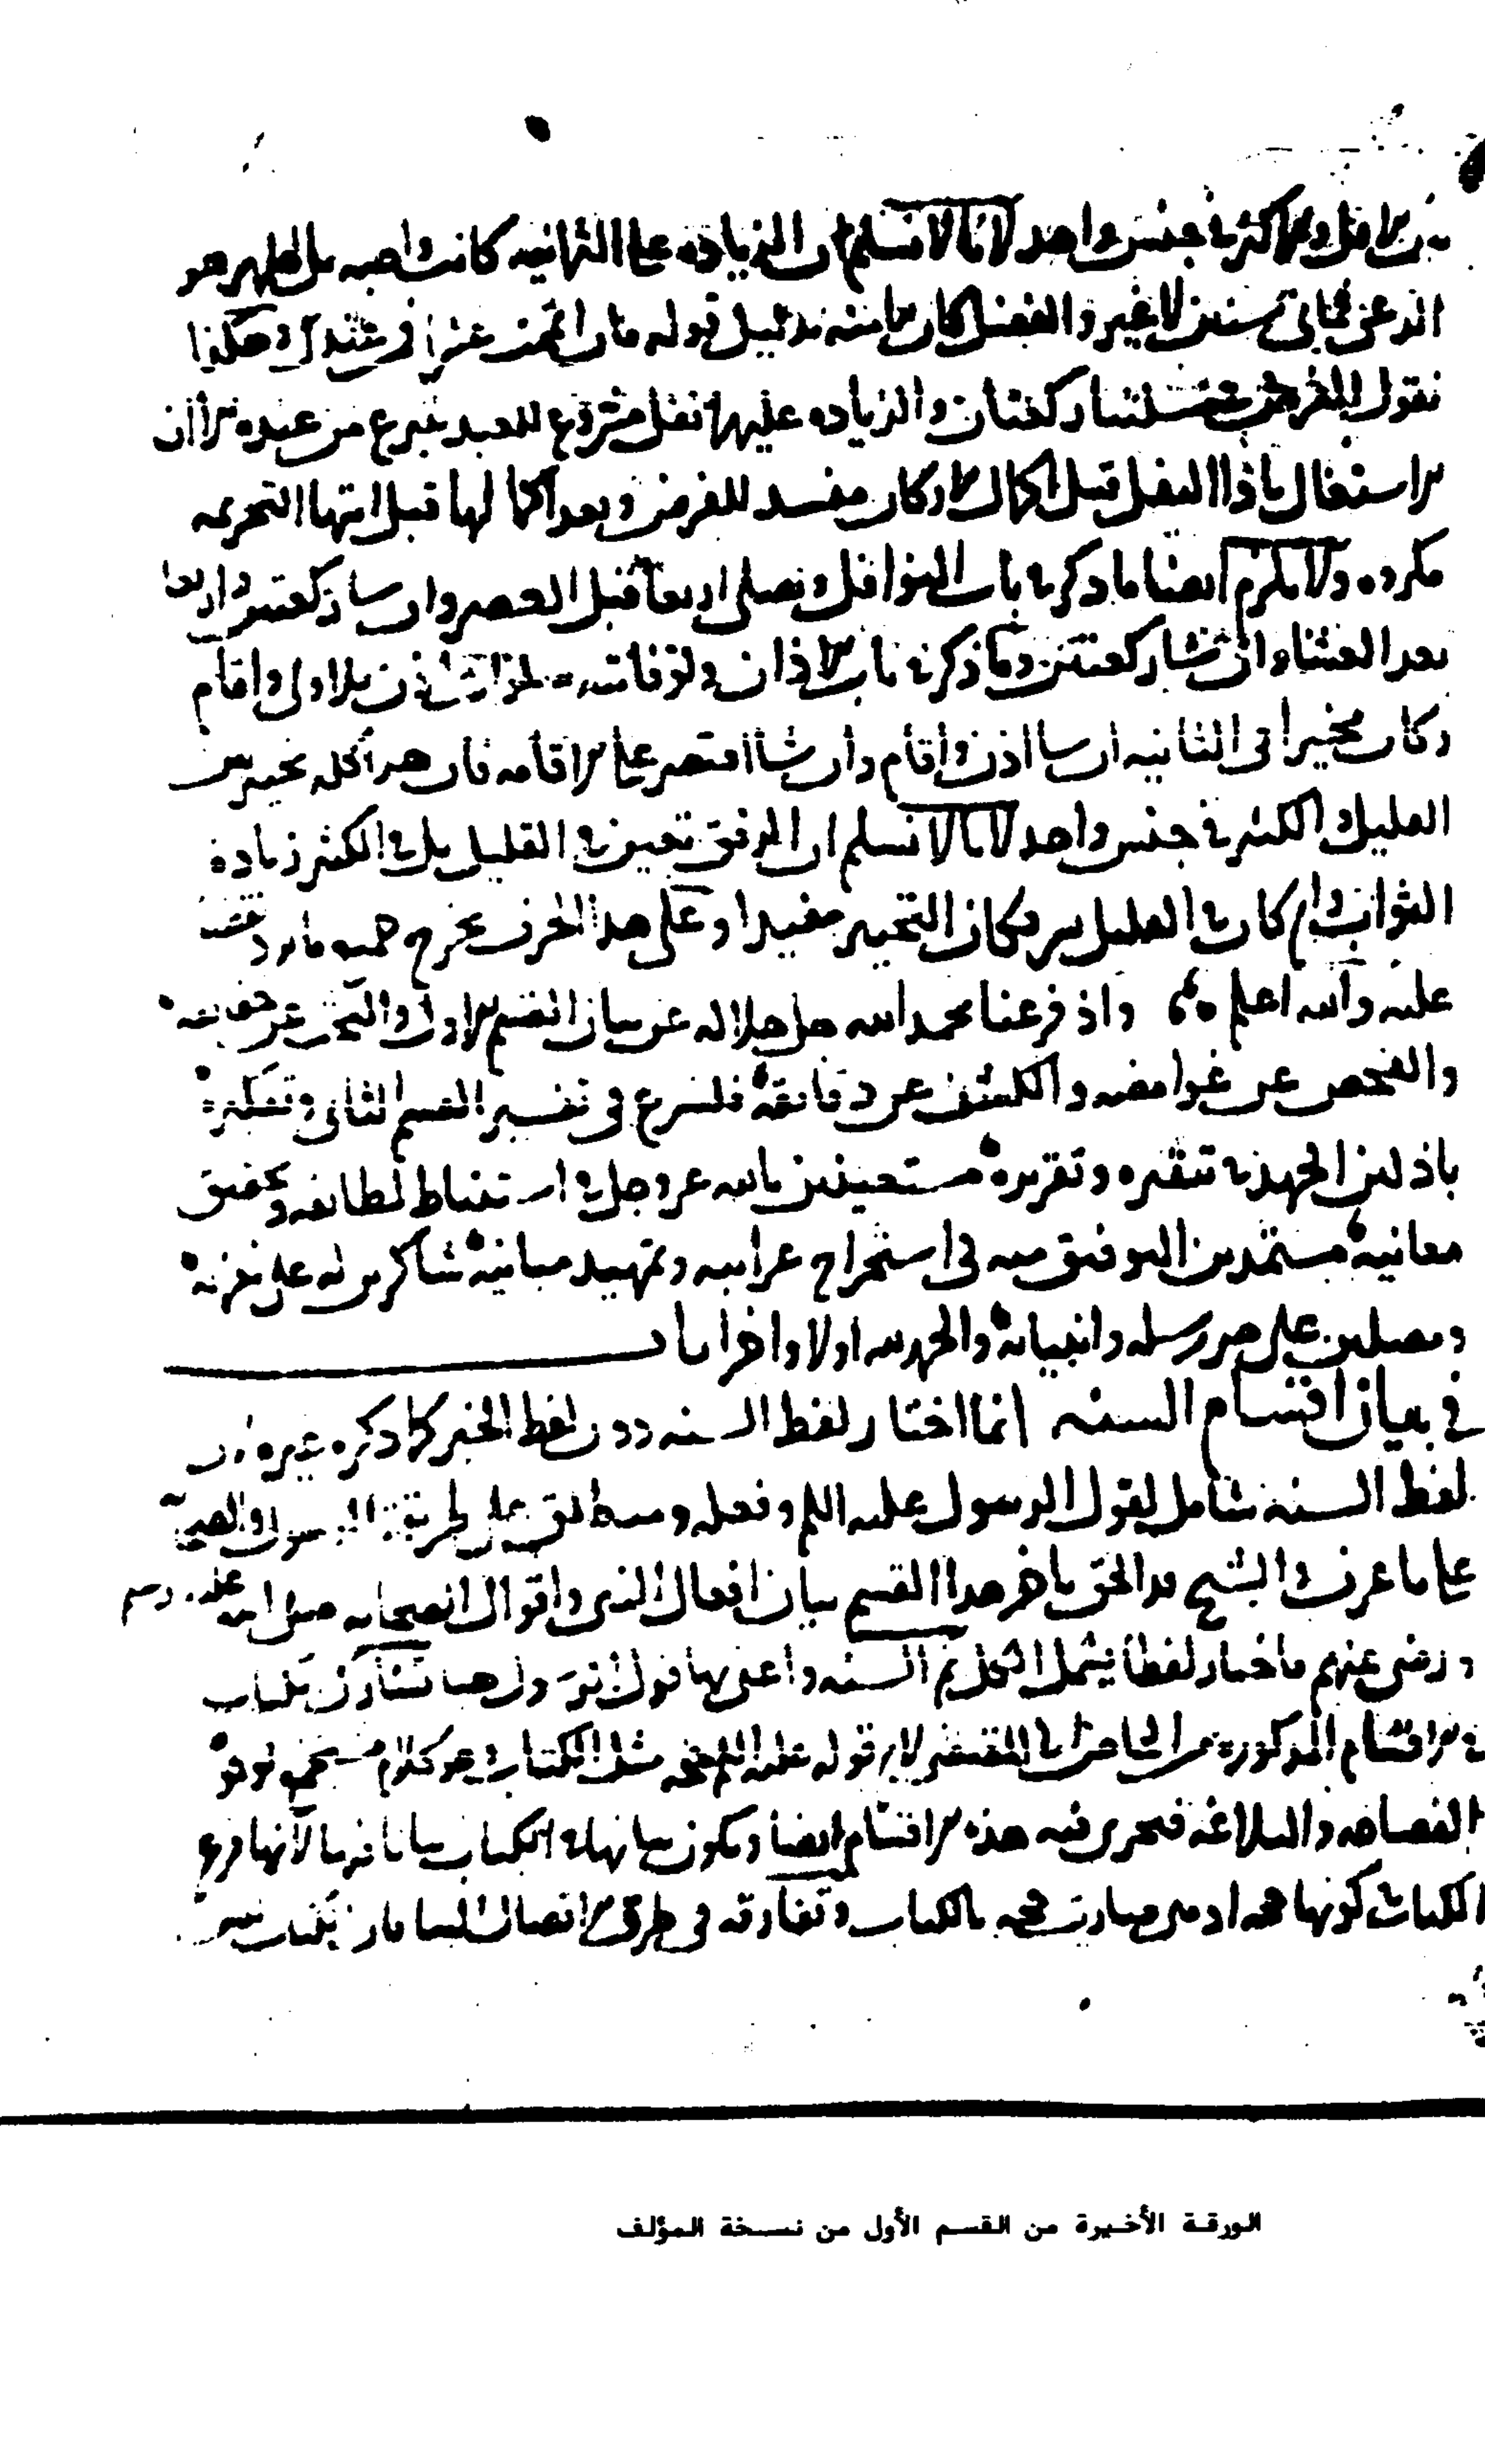 الاقل والاكثر في جنس واحد لانا لا نسلم ان الزيادة على الثمانية كانت واجبة بل المهر هو
الذي عن ثماني سنين لا غير والفضل كان برا منه بدليل قوله فان اتممت عشرا فمن عندك وهكذا
نقول الفرض في مسئلتنا ركعتان والزياده عليهما نفل مشروع للعبد تبرع من عنده الا ان
الاشتغال باداء النفل قبل اكمال الاركان مفسد للفرض وبعد اكمالها قبل انتها التحريمه
مكروه ولا يلزم ايضا ما ذكر في باب النوافل ويصلي اربعا قبل العصر وان شا ركعتين واربعا
بعد العشا وان شا ركعتين وما ذكر في باب الاذان ولو فاتته صلوات اذن للاولى واقام
وكان مخيرا في الثانيه ان شا اذن واقام وان شا اقتصر على الاقامه فان هذا كله تخيير بين
القليل والكثير في جنس واحد لانا لا نسلم ان الرفق تعين في القليل بل في الكثير زيادة
الثواب وان كان في القليل يسر فكان التخيير مفيدا وعلى هذا الحرف يخرج جميع ما يرد نقضا
عليه والله اعلم واذ فرغنا بحمد الله جل جلاله عن بيان القسم الاول والتحرير عن حقايقه
والفحص عن غوامضه والكشف عن دقائقه فلنشرع في تفسير القسم الثاني وتفكيره
باذلين الجهد في تنقيره وتقريره مستعينين بالله عز وجل في استنباط لطائفه وتحقيق
معانيه مستمدين التوفيق منه في استخراج غرايبه وتمهيد مبانيه شاكرين له على
ومصلين على خير رسله وانبيائه والحمد لله اولا واخرا باب
في بيان اقسام السنه انما اختار لفظ السنه دون لفظ الخبر كما ذكره غيره لان
لفظ السنه شامل لقول الرسول عليه السلم وفعله ومنطلق على طريقة الرسول والصحابة
على ما عرف والشيخ قد الحق باخر هذا القسم بيان افعال النبي واقوال الصحابه صلى الله عليه وسلم
ورضي عنهم فاختار لفظا يشمل الكل ثم السنه واعني بها قول الرسول هنا تشارك الكتاب
في الاقسام المذكورة من الخاص الى المقتضى لان قوله عليه السلم حجه مثل الكتاب وهو كلام مستجمع لوجوه
الفصاحه والبلاغه فيجري فيه هذه الاقسام ايضا ويكون بيانها في الكتاب بيانا فيها لانها فرع
الكتاب في كونها حجه اذ هي صارت حجه بالكتاب وتفارقه في طرق الاتصال الينا فان الكتاب ليس
الورقة الأخيرة من القسم الأول من نسخة المؤلف